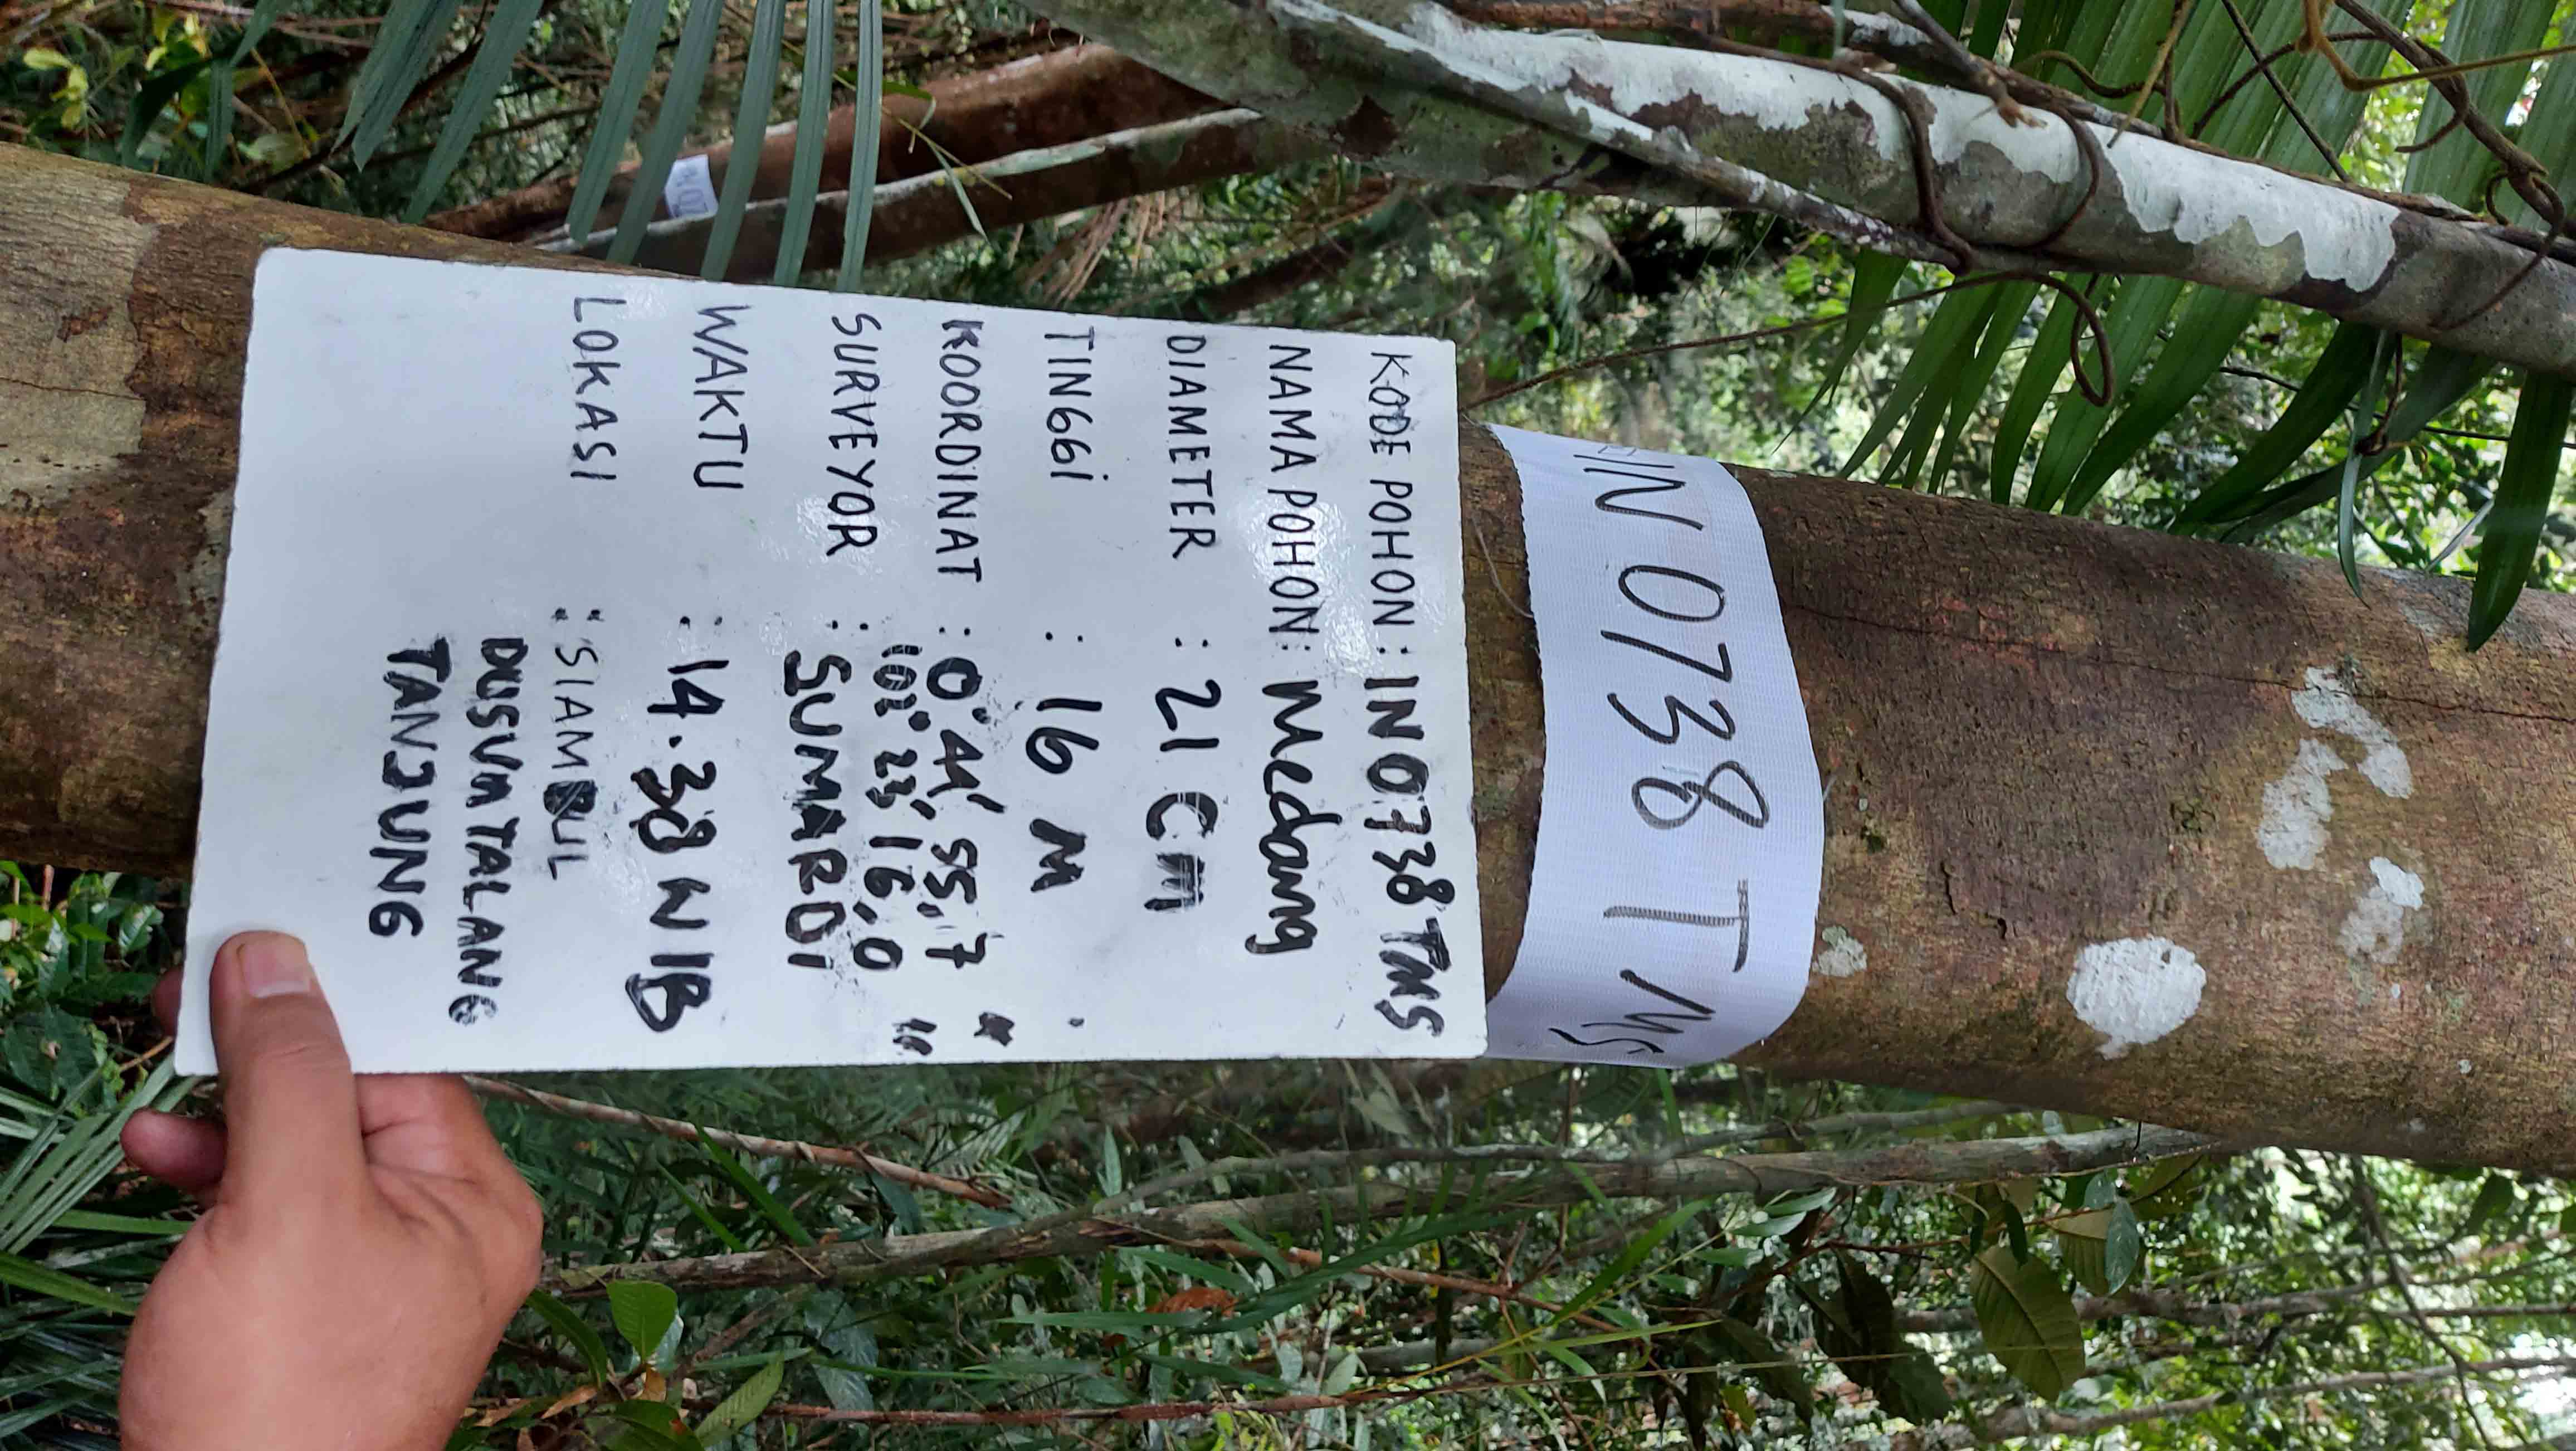 IN 0738 TMS
KODE POHON : IN 0738 TMS
NAMA POHON : Medang
DIAMETER : 21 Cm
TINGGi : 16 M
KOORDINAT : 0° 44' 55,7 "
102° 23' 16,0 "
SURVEYOR : SUMARDi
WAKTU : 14.38 WIB
LOKASI : SIAMBUL
DUSUn TALANG
TANJUNG